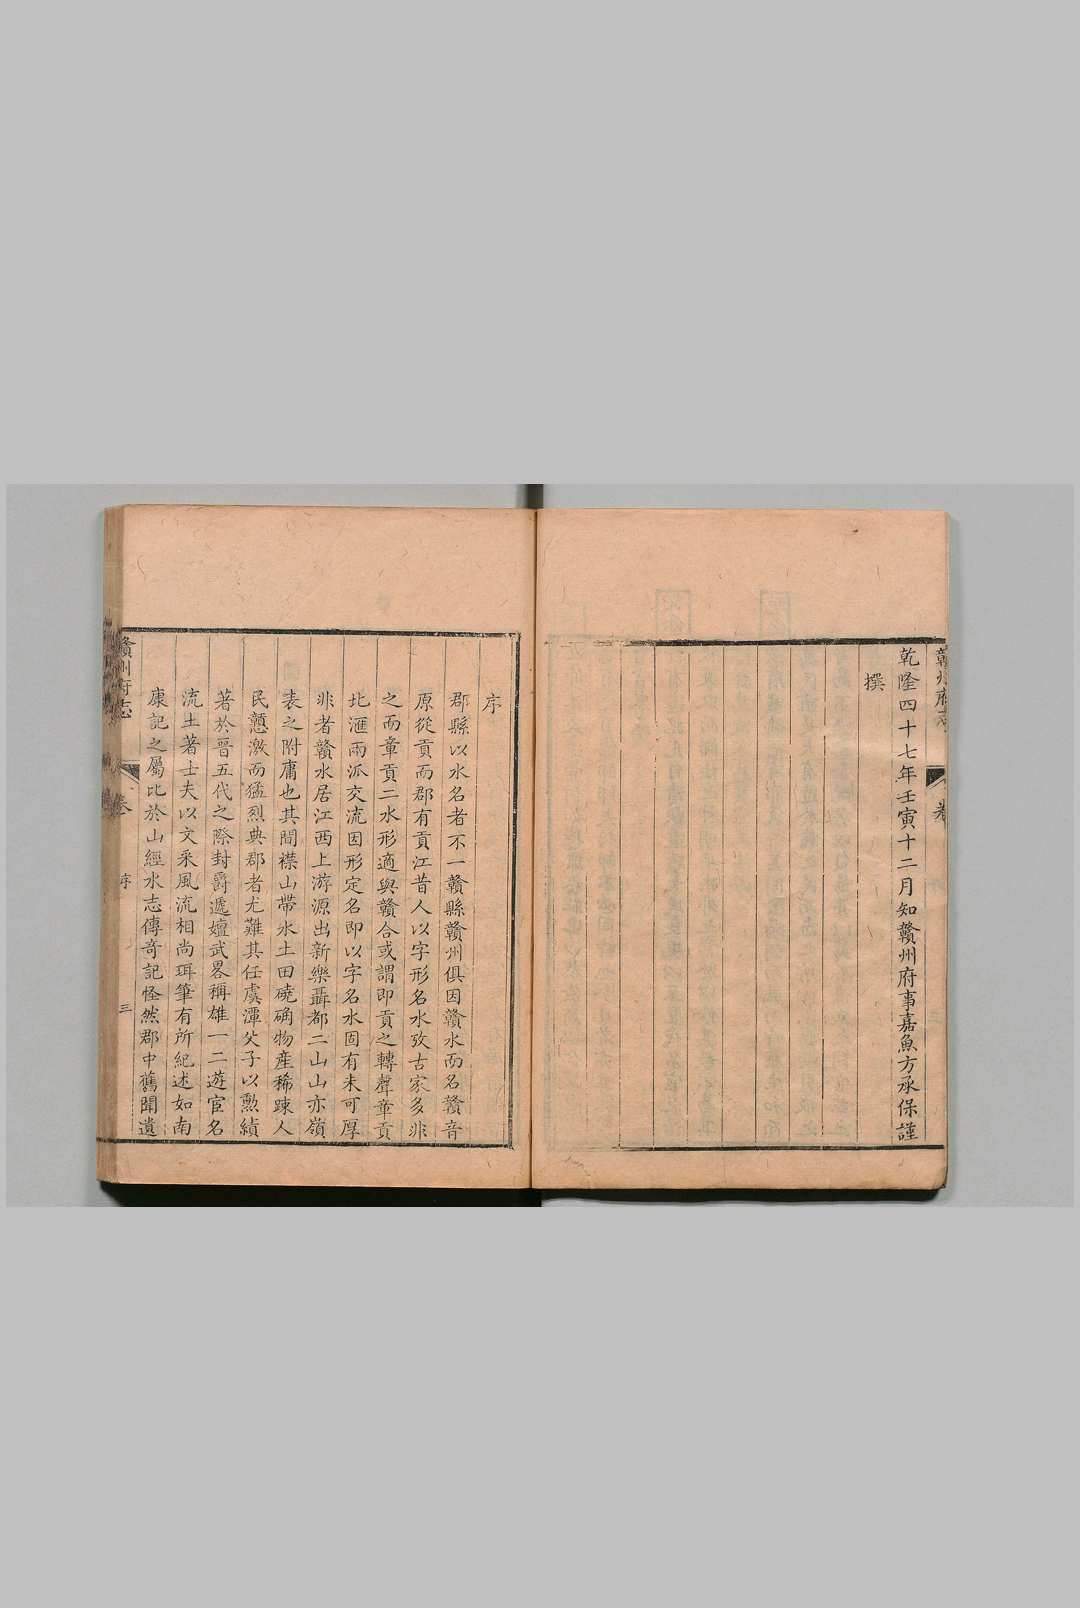 贛州府志
乾隆四十七年壬寅十二月知贛州府事嘉魚方承保謹
撰
序
郡縣以水名者不一贛縣贛州俱因贛水而名贛音
原從貢而郡有貢江昔人以字形名水攷古家多非
之而章貢二水形適與贛合或謂即貢之轉聲章貢
北滙兩派交流因形定名即以字名水固有未可厚
非者贛水居江西上游源出新樂聶都二山山亦嶺
表之附庸也其間襟山帶水土田磽确物產稀踈人
民戇激而猛烈典郡者尤難其任虞潭父子以勲績
著於晉五代之際封爵遞嬗武畧稱雄一二遊宦名
流土著士夫以文采風流相尚珥筆有所紀述如南
康記之屬比於山經水志傳奇記怪然郡中舊聞遺
贛州府志
卷
序
三